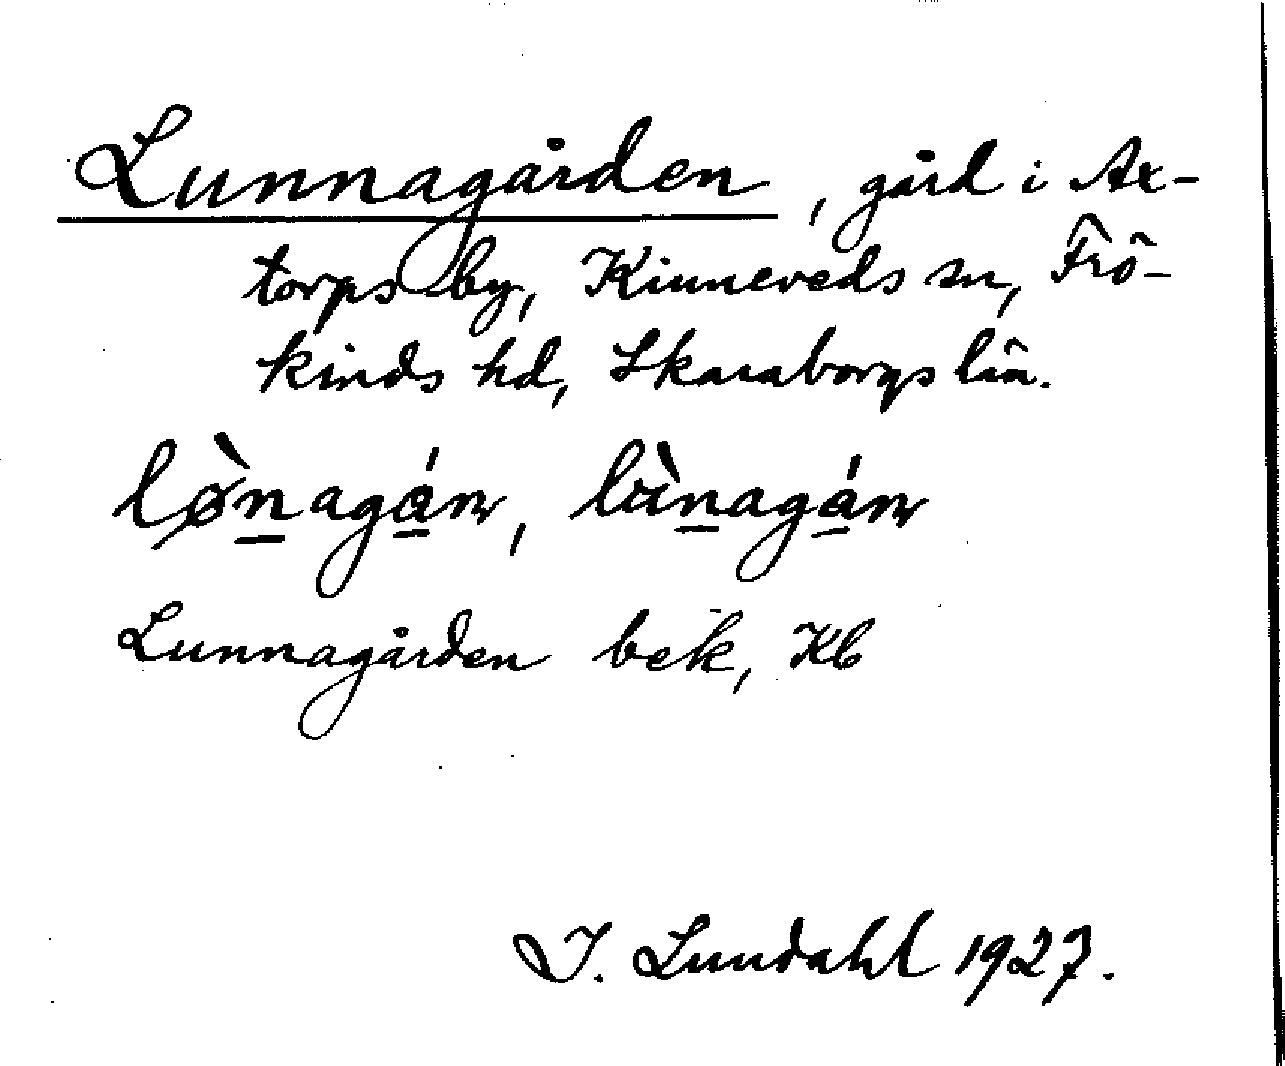 Lunnagården, gård i Ax-
torps by, Kinneveds sn, Frö-
kinds hd, Skaraborgs län.
lø̀n̲agá̲n, lùn̲agá̲n
Lunnagården bek, Kb
I. Lundahl 1927.